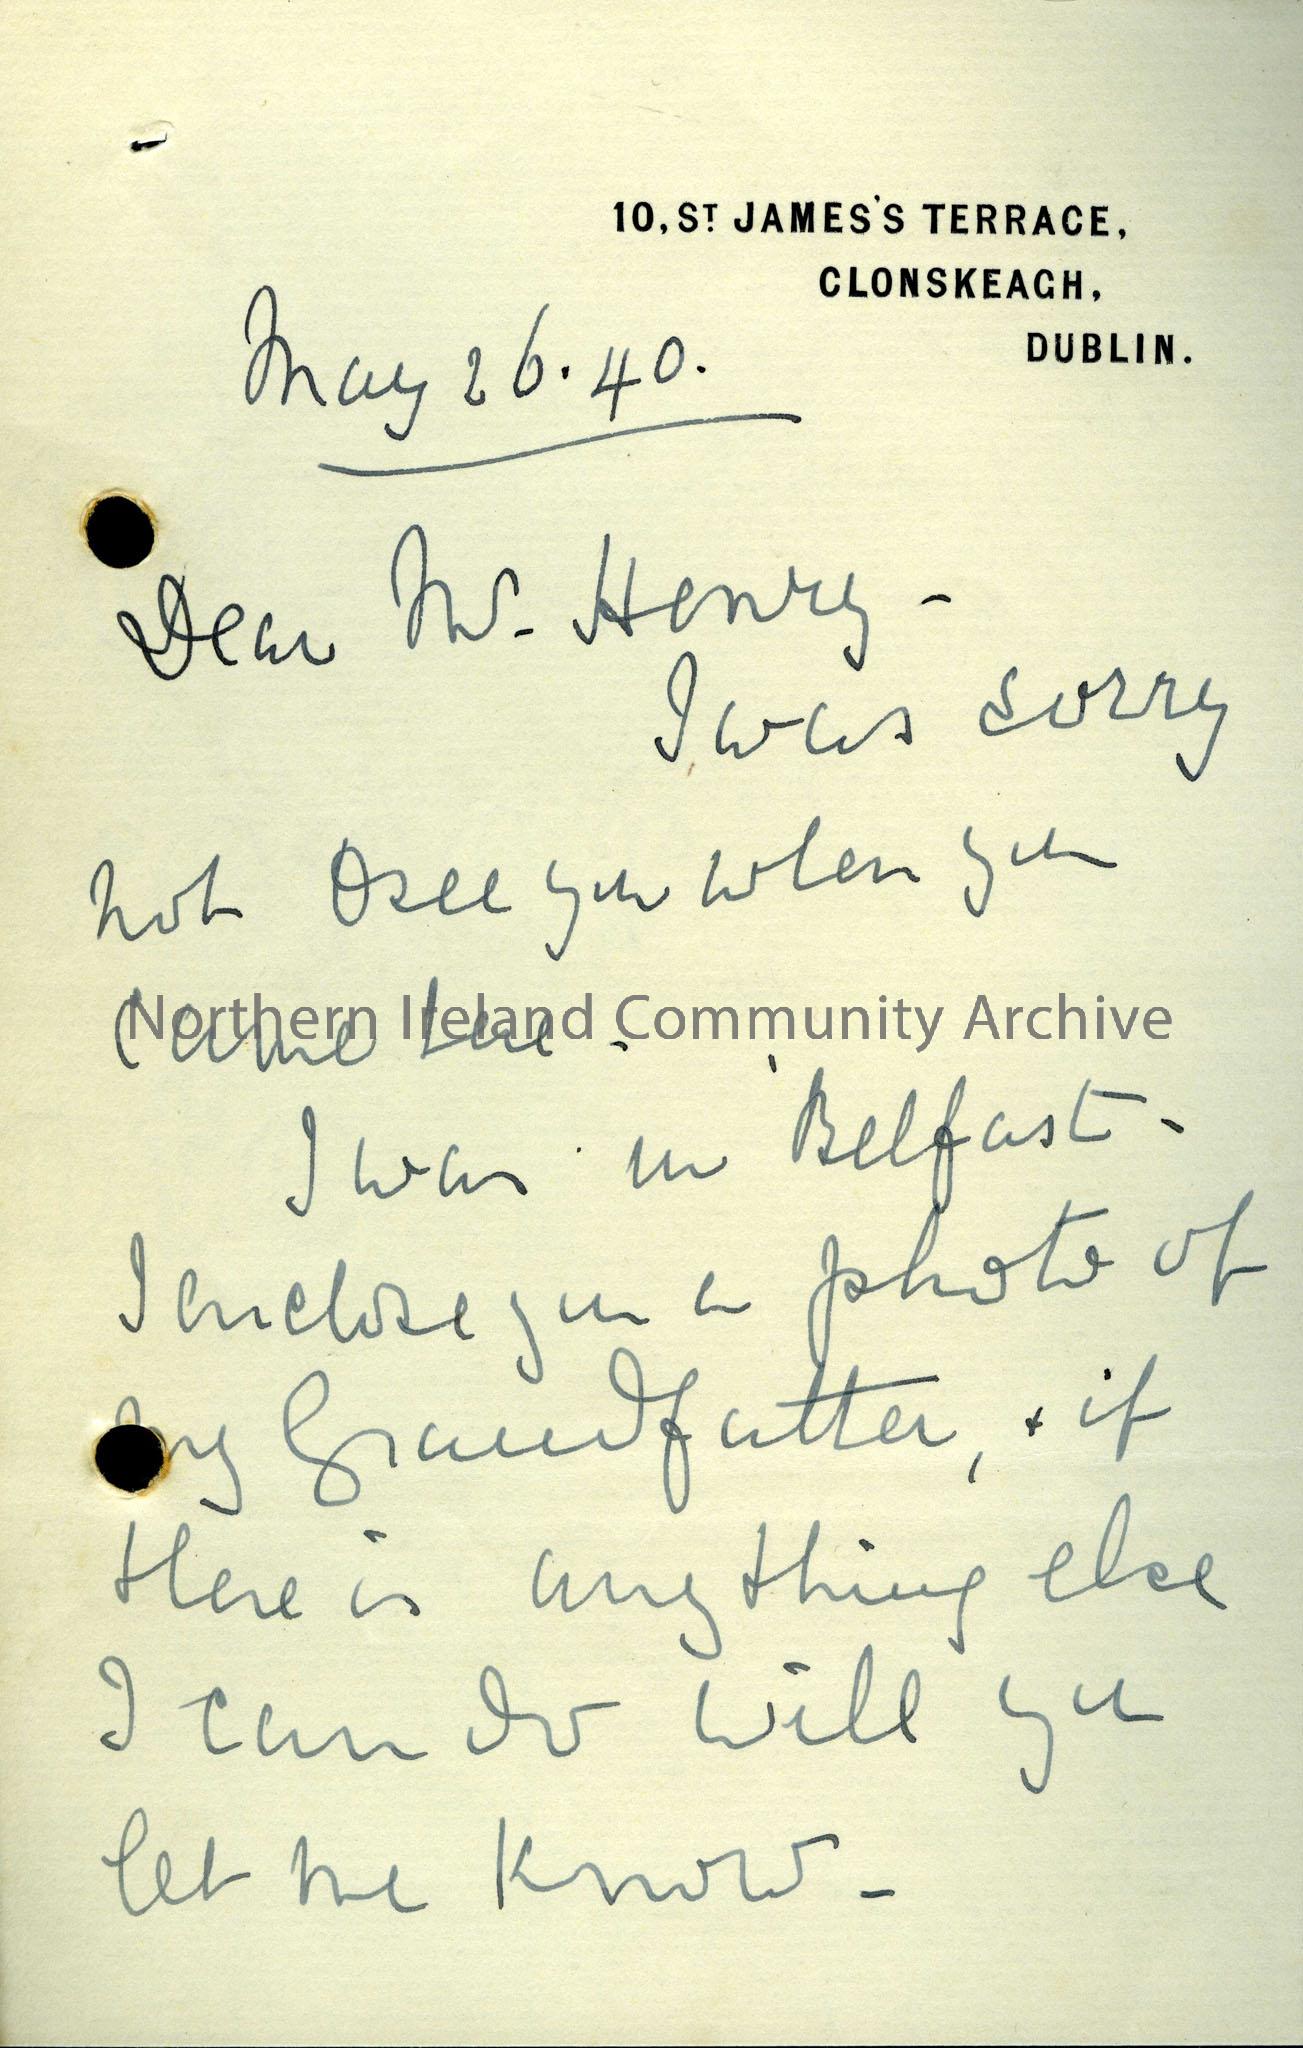 10, ST JAMES'S TERRACE,
CLONSKEAGH,
DUBLIN.
May 26. 40.
Dear Mr. Henry -
I was sorry
not to see you when you
came here -
Northern Ireland Community Archive
I was in Belfast -
I enclose you a photo of
my Grandfather, + if
there is anything else
I can do will you
let me know -